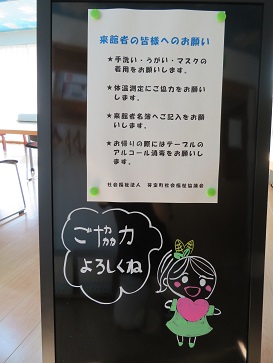 来館者の皆様へのお願い
★手洗い・うがい・マスクの
着用をお願いします。
★体温測定にご協力をお願
いします。
★来館者名簿へご記入をお願
いします。
★お帰りの際にはテーブルの
アルコール消毒をお願いし
ます。
社会福祉法人
町社会福祉協議会
ご協力
よろしくね